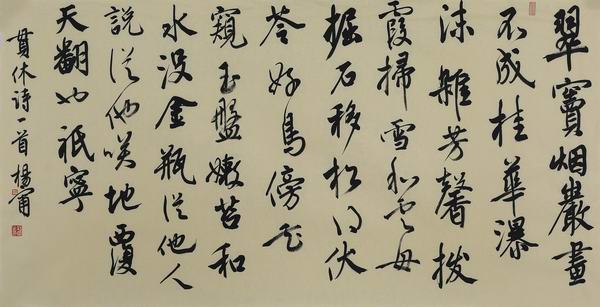 翠竇烟巖畫
不成桂華瀑
沫雜芳馨拨
霞掃雪和云母
掘石移松得伏
苓好鳥傍花
窺玉盤嫩苔和
水没金瓶從他人
說從他咲地覆
天翻也祇寧
貫休詩一首楊